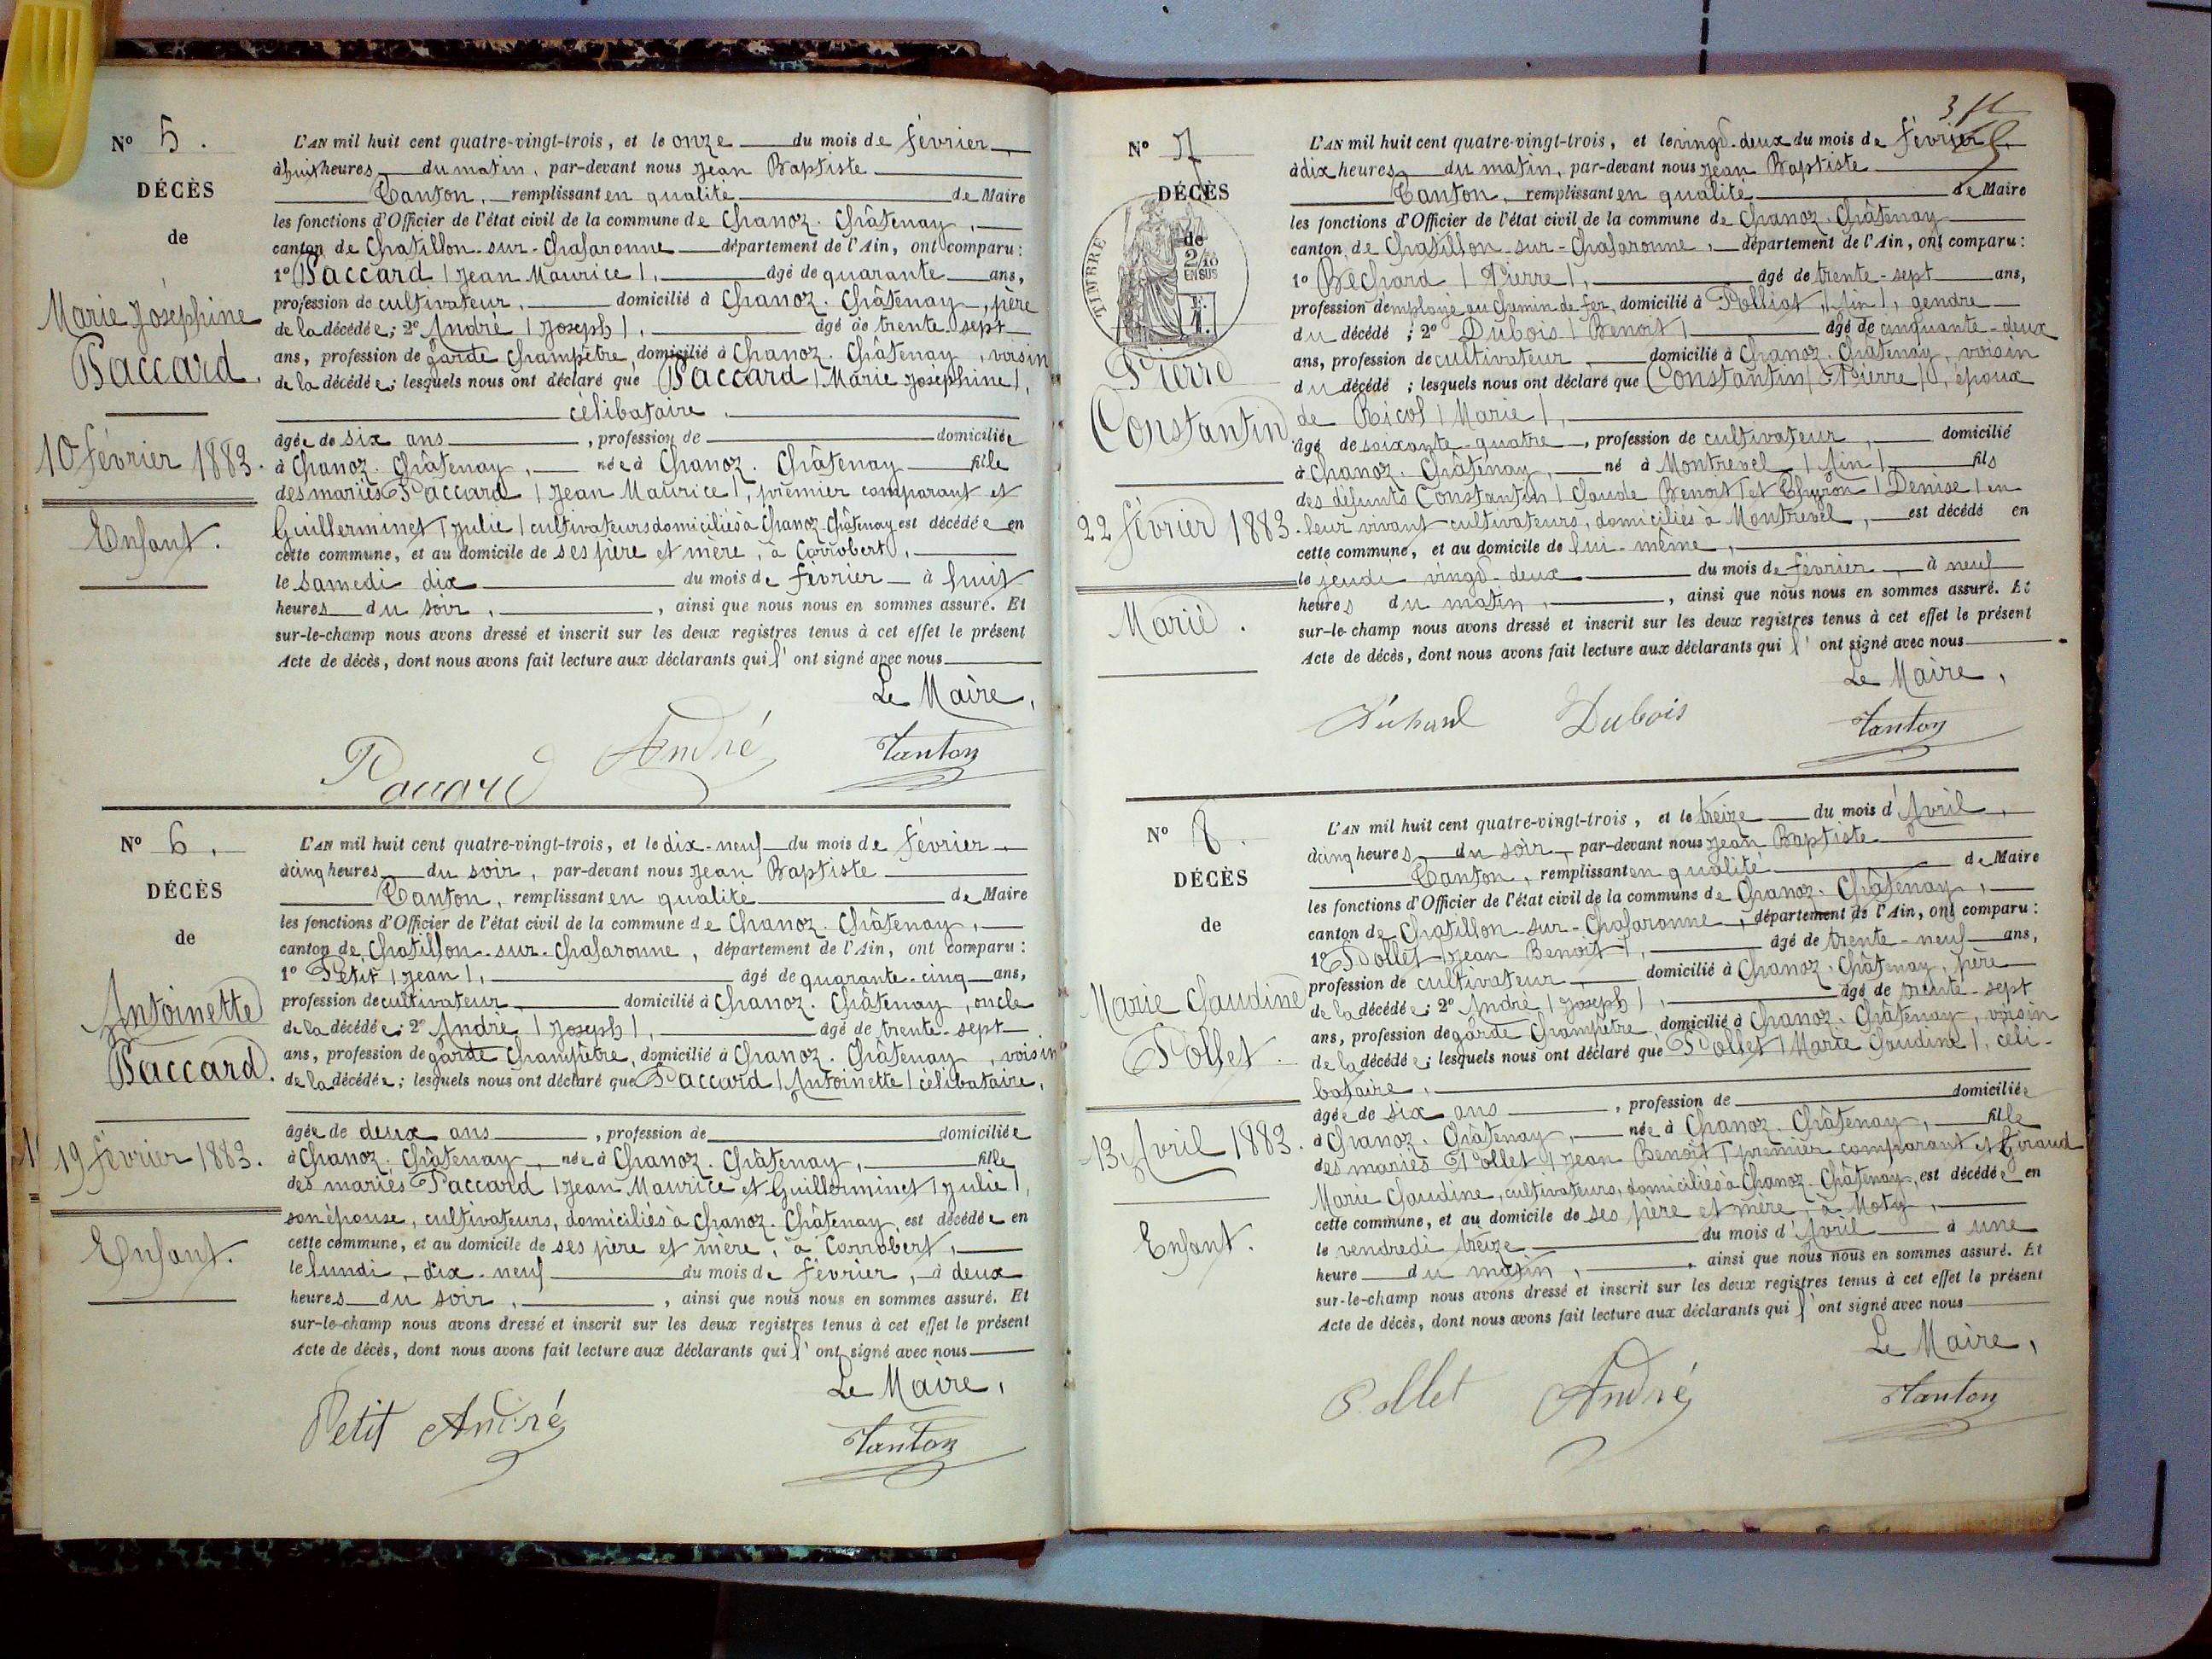 N° 5.
DÉCÈS
de
Marie Joséphine
Paccard.
10 février 1883.
Enfant.
L'AN mil huit cent quatre-vingt-trois, et le onze du mois de février
à huit heures du matin, par-devant nous Jean Baptiste
Tanton, remplissant en qualité de Maire
les fonctions d'Officier de l'état civil de la commune de Chanoz-Châtenay,
canton de Chatillon-sur-Chalaronne département de l'Ain, ont comparu:
1° Paccard (Jean Maurice), âgé de quarante ans,
profession de cultivateur, domicilié à Chanoz-Châtenay, père
de la décédée; 2° André (Joseph), âgé de trente-sept
ans, profession de garde champêtre domicilié à Chanoz-Châtenay, voisin
de la décédée; lesquels nous ont déclaré que Paccard (Marie Joséphine),
célibataire.
âgée de six ans, profession de domiciliée
à Chanoz-Châtenay, née à Chanoz-Châtenay fille
des mariés Paccard (Jean Maurice), premier comparant et
Guillerminet (Julie) cultivateurs domiciliés à Chanoz-Châtenay est décédée en
cette commune, et au domicile de ses père et mère, à Corrobert,
le samedi dix du mois de février à huit
heures du soir, ainsi que nous nous en sommes assuré. Et
sur-le-champ nous avons dressé et inscrit sur les deux registres tenus à cet effet le présent
Acte de décès, dont nous avons fait lecture aux déclarants qui l'ont signé avec nous
Le Maire,
Paccard André Tanton
N° 6.
DÉCÈS
de
Antoinette
Paccard.
19 février 1883.
Enfant.
L'AN mil huit cent quatre-vingt-trois, et le dix-neuf du mois de février
à cinq heures du soir, par-devant nous Jean Baptiste
Tanton, remplissant en qualité de Maire
les fonctions d'Officier de l'état civil de la commune de Chanoz-Châtenay,
canton de Chatillon-sur-Chalaronne, département de l'Ain, ont comparu:
1° Petit (Jean), âgé de quarante-cinq ans,
profession de cultivateur domicilié à Chanoz-Châtenay, oncle
de la décédée; 2° André (Joseph), âgé de trente-sept
ans, profession de garde champêtre, domicilié à Chanoz-Châtenay, voisin
de la décédée; lesquels nous ont déclaré que Paccard (Antoinette) célibataire,
âgée de deux ans, profession de domiciliée
à Chanoz-Châtenay, née à Chanoz-Châtenay, fille
des mariés Paccard (Jean Maurice et Guillerminet (Julie),
son épouse, cultivateurs, domiciliés à Chanoz-Châtenay est décédée en
cette commune, et au domicile de ses père et mère, à Corrobert,
le lundi dix-neuf du mois de février, à deux
heures du soir, ainsi que nous nous en sommes assuré. Et
sur-le-champ nous avons dressé et inscrit sur les deux registres tenus à cet effet le présent
Acte de décès, dont nous avons fait lecture aux déclarants qui l'ont signé avec nous
Le Maire,
Petit André Tanton
N° 7
DÉCÈS
de
TIMBRE
2/10
EN SUS
Pierre
Constantin
22 février 1883.
Marié.
L'AN mil huit cent quatre-vingt-trois, et le vingt-deux du mois de février
à dix heures du matin, par-devant nous Jean Baptiste
Tanton, remplissant en qualité de Maire
les fonctions d'Officier de l'état civil de la commune de Chanoz-Châtenay
canton de Chatillon-sur-Chalaronne, département de l'Ain, ont comparu:
1° Béchard (Pierre), âgé de trente-sept ans,
profession d'employé au Chemin de fer, domicilié à Polliat (Ain), gendre
du décédé; 2° Dubois (Benoit) âgé de cinquante-deux
ans, profession de cultivateur domicilié à Chanoz-Châtenay, voisin
du décédé; lesquels nous ont déclaré que Constantin (Pierre), époux
de Ricol (Marie),
âgé de soixante-quatre, profession de cultivateur, domicilié
à Chanoz-Châtenay, né à Montrevel (Ain) fils
des défunts Constantin (Claude Benoit) et (Denise) en
leur vivant cultivateurs, domiciliés à Montrevel, est décédé en
cette commune, et au domicile de lui-même,
le jeudi vingt-deux du mois de février, à neuf
heures du matin, ainsi que nous nous en sommes assuré. Et
sur-le-champ nous avons dressé et inscrit sur les deux registres tenus à cet effet le présent
Acte de décès, dont nous avons fait lecture aux déclarants qui l'ont signé avec nous
Le Maire,
Béchard Dubois Tanton
N° 8.
DÉCÈS
de
Marie Claudine
Pollet.
13 Avril 1883.
Enfant.
L'AN mil huit cent quatre-vingt-trois, et le treize du mois d'Avril,
à cinq heures du soir, par-devant nous Jean Baptiste
Tanton, remplissant en qualité de Maire
les fonctions d'Officier de l'état civil de la commune de Chanoz-Châtenay,
canton de Chatillon-sur-Chalaronne, département de l'Ain, ont comparu:
1° Pollet (Jean Benoit), âgé de trente-neuf ans,
profession de cultivateur, domicilié à Chanoz-Châtenay, père
de la décédée; 2° André (Joseph), âgé de trente-sept
ans, profession de garde champêtre, domicilié à Chanoz-Châtenay, voisin
de la décédée; lesquels nous ont déclaré que Pollet (Marie Claudine), céli-
bataire,
âgée de six ans, profession de domiciliée
à Chanoz-Châtenay, née à Chanoz-Châtenay, fille
des mariés Pollet (Jean Benoit) premier comparant et Giraud
Marie Claudine, cultivateurs, domiciliés à Chanoz-Châtenay, est décédée en
cette commune, et au domicile de ses père et mère, à
le vendredi treize du mois d'Avril à une
heure du matin, ainsi que nous nous en sommes assuré. Et
sur-le-champ nous avons dressé et inscrit sur les deux registres tenus à cet effet le présent
Acte de décès, dont nous avons fait lecture aux déclarants qui l'ont signé avec nous
Le Maire,
Pollet André Tanton